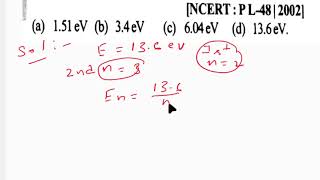 [NCERT : PL-48|2002]
(a) 1.51 eV (b) 3.4 eV (c) 6.04 eV (d) 13.6 eV.
Sol:-
E = 13.6 ev
n = 2
2nd n = 3
En = 13.6 / n